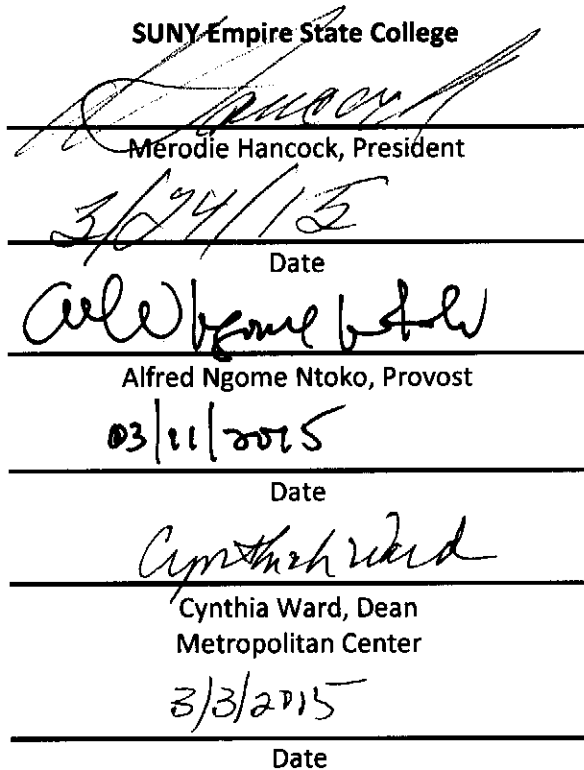 SUNY Empire State College
Hancock
Merodie Hancock, President
3/24/15
Date
Ngome Ntoko
Alfred Ngome Ntoko, Provost
03/11/2015
Date
Cynthia Ward
Cynthia Ward, Dean
Metropolitan Center
3/3/2015
Date